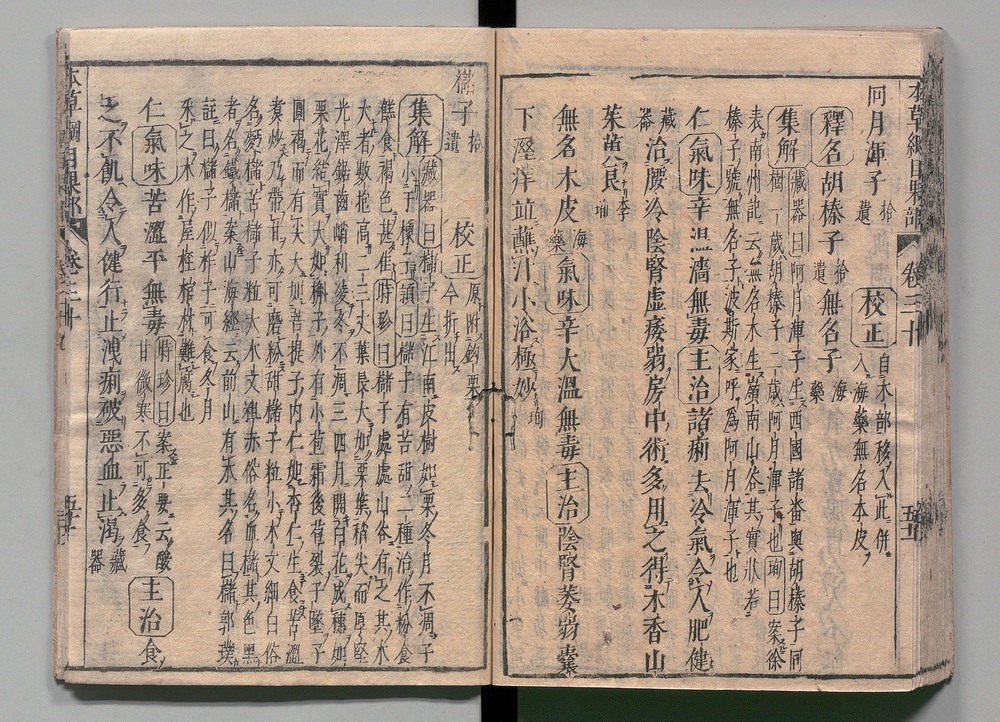 本草綱目果部 卷三十
阿月渾子 拾遺 校正 自木部移入此併入海藥無名木皮
釋名 胡榛子 拾遺 無名子 海藥
集解 藏器曰阿月渾子生西國諸番與胡榛子同
樹一歲胡榛子二歲阿月渾子也珣曰案徐
表南州記云無名木生嶺南山谷其實狀若
榛子號無名子波斯家呼爲阿月渾子也
仁 氣味 辛溫濇無毒 主治 諸痢去冷氣令人肥健
藏器 治腰冷陰腎虛痿弱房中術多用之得木香山
茱萸良 李珣
無名木皮 海藥 氣味 辛大溫無毒 主治 陰腎萎弱囊
下溼痒竝䕩汁小浴極妙 珣
櫧子 拾遺 校正 原附鉤栗今析出
集解 藏器曰櫧子生江南皮樹如栗冬月不凋子
小于橡頴曰櫧子有苦甜二種治作粉食
餻食褐色甚佳時珍曰櫧子處處山谷有之其木
大者數抱高二三丈葉長大如栗葉稍尖而厚堅
光澤鋸齒峭利凌冬不凋三四月開白花成穗如
栗花結實大如槲子外有小苞霜後苞裂子墜子
圓褐而有尖大如菩提子內仁如杏仁生食苦澀
煮炒乃帶甘亦可磨粉甜櫧子粒小木文細白俗
名麪櫧苦櫧子粒大木文麤赤俗名血櫧其色黑
者名鐵櫧案山海經云前山有木其名曰櫧郭璞
註曰櫧子似柞子可食冬月
采之木作屋柱棺材難腐也
仁 氣味 苦澀平無毒 時珍曰案正要云酸
甘微寒不可多食 主治 食
之不飢令人健行止洩痢破惡血止渴 藏器
本草綱目果部 卷三十